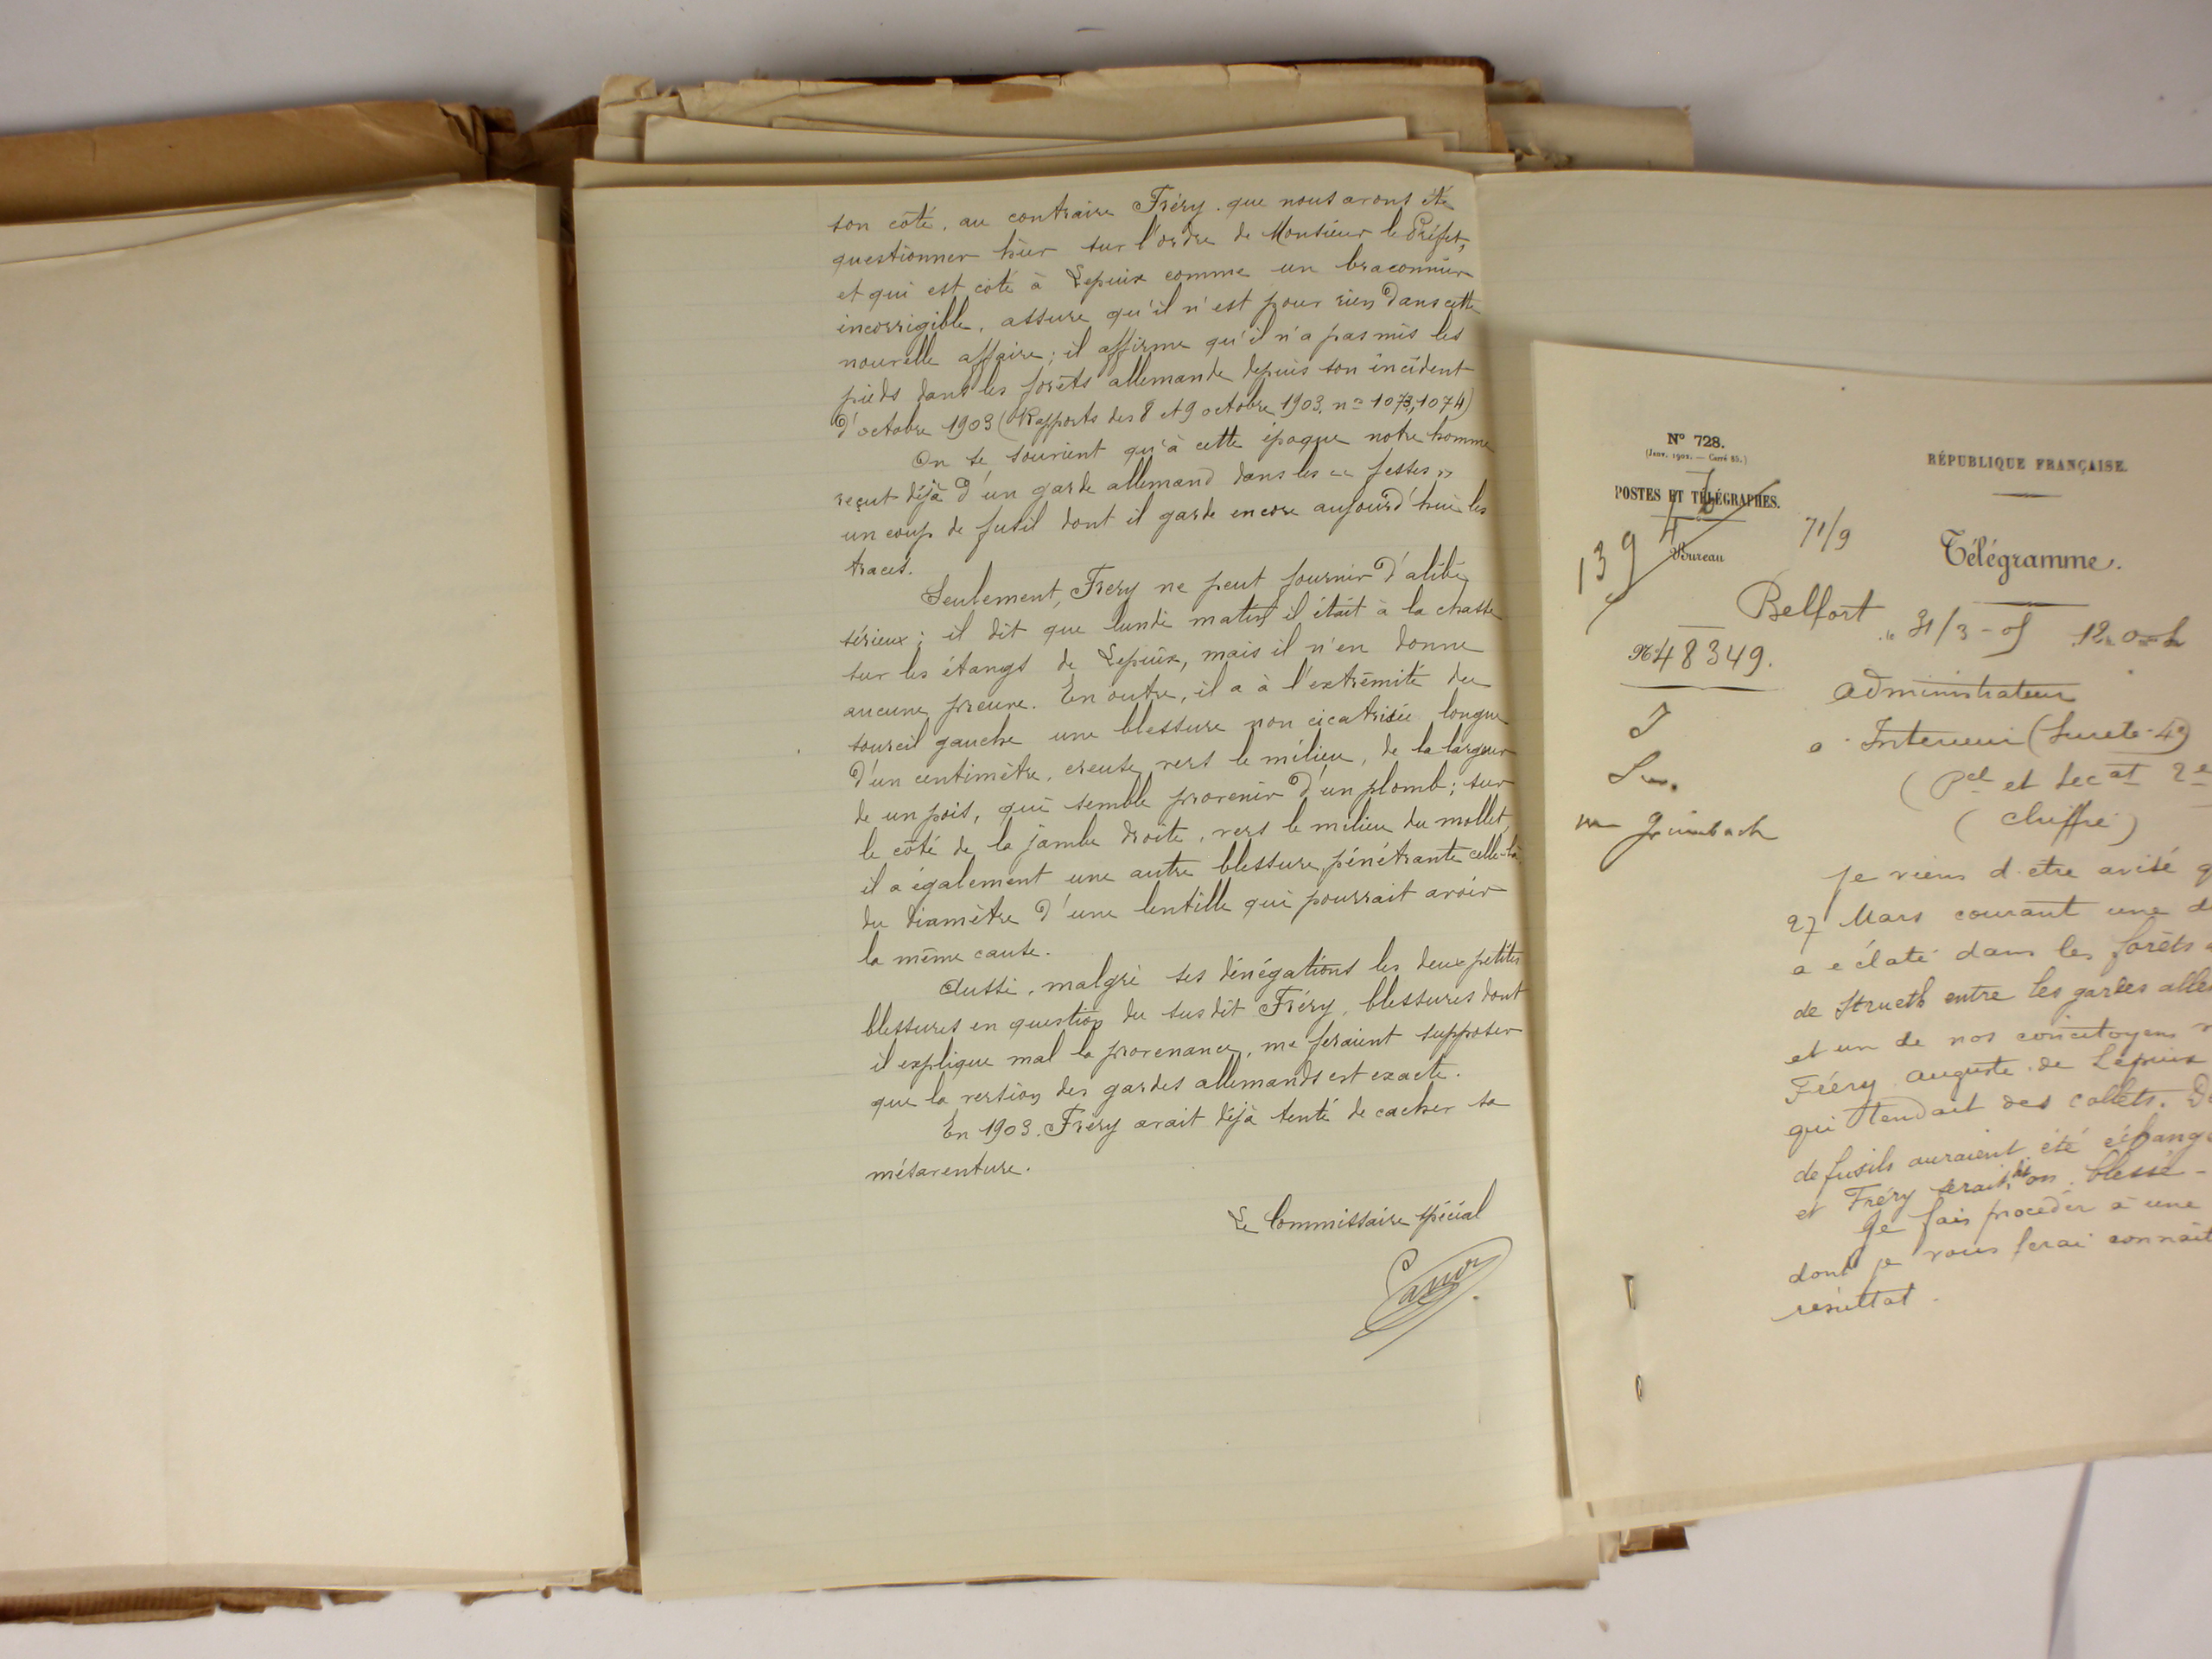 son côté, au contraire Fréry que nous avons été
questionner hier sur l'ordre de Monsieur le Préfet,
et qui est coté à Lepuix comme un braconnier
incorrigible, assure qu'il n'est pour rien dans cette
nouvelle affaire ; il affirme qu'il n'a pas mis les
pieds dans les forêts allemande depuis son incident
d'octobre 1903 (Rapports des 8 et 9 octobre 1903. nos 1073, 1074)
On se souvient qu'à cette époque notre homme
reçut déjà d'un garde allemand dans les « fesses »
un coup de fusil dont il garde encore aujourd'hui les
traces.
Seulement, Frery ne peut fournir d'alibi
sérieux ; il dit que lundi matin il était à la chasse
sur les étangs de Lepuix, mais il n'en donne
aucune preuve. En outre, il a à l'extrémité du
sourcil gauche une blessure non cicatrisée longue
d'un centimètre, creuse vers le milieu, de la largeur
de un pois, qui semble provenir d'un plomb ; sur
le côté de la jambe droite, vers le milieu du mollet,
il a également une autre blessure, pénétrante celle-là,
du diamètre d'une lentille qui pourrait avoir
la même cause.
Aussi, malgré ses dénégations les deux petites
blessures en question du susdit Fréry, blessures dont
il explique mal la provenance, me feraient supposer
que la version des gardes allemands est exacte.
En 1903. Fréry avait déjà tenté de cacher sa
mésaventure.
Le Commissaire spécial
N° 728.
(Janv. 1902. — Carré 85.)
RÉPUBLIQUE FRANÇAISE.
POSTES ET TÉLÉGRAPHES.
139
Bureau
71/9
Télégramme.
Belfort le 31/3-05
N° 48349.
administrateur
a Interieur (Surete-4e)
(Pel et Secat 2e
(Chiffre)
m Grimbach
Je viens d'etre avisé q
27 Mars courant une d
a éclaté dans les forêts a
de Strueth entre les gardes alle
et un de nos concitoyens
Fréry auguste de Lepuix
qui tendait des collets. D
de fusils auraient été échang
et Fréry serait, dit on, blessé -
Je fais procéder à une
dont je vous ferai connait
résultat.